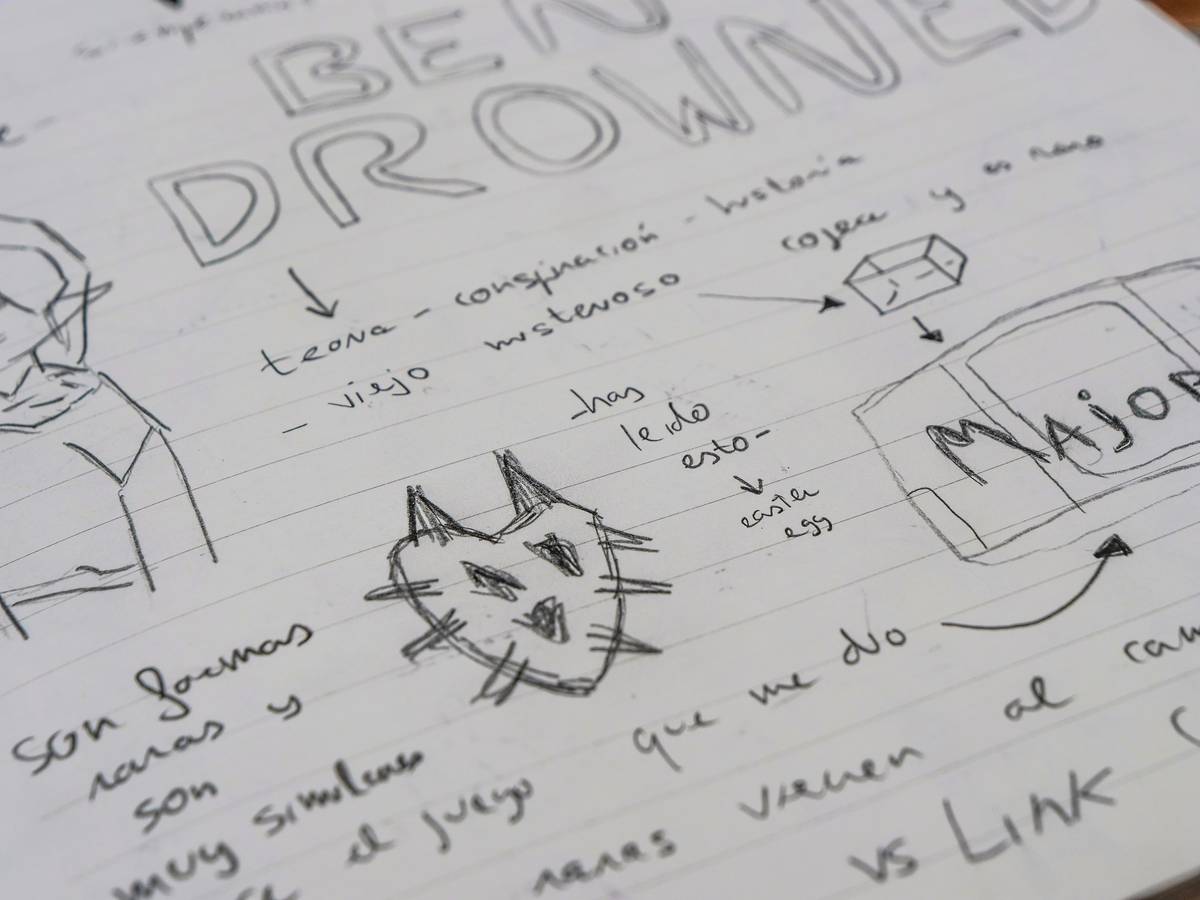 BEN
DROWNED
teoria - conspiración - historia
- viejo misterioso
cojea y es raro
-has
leido
esto-
easter
egg
MAJOR
son formas
raras y
son
muy similares
el juego que me dio
raras vienen al
vs LINK